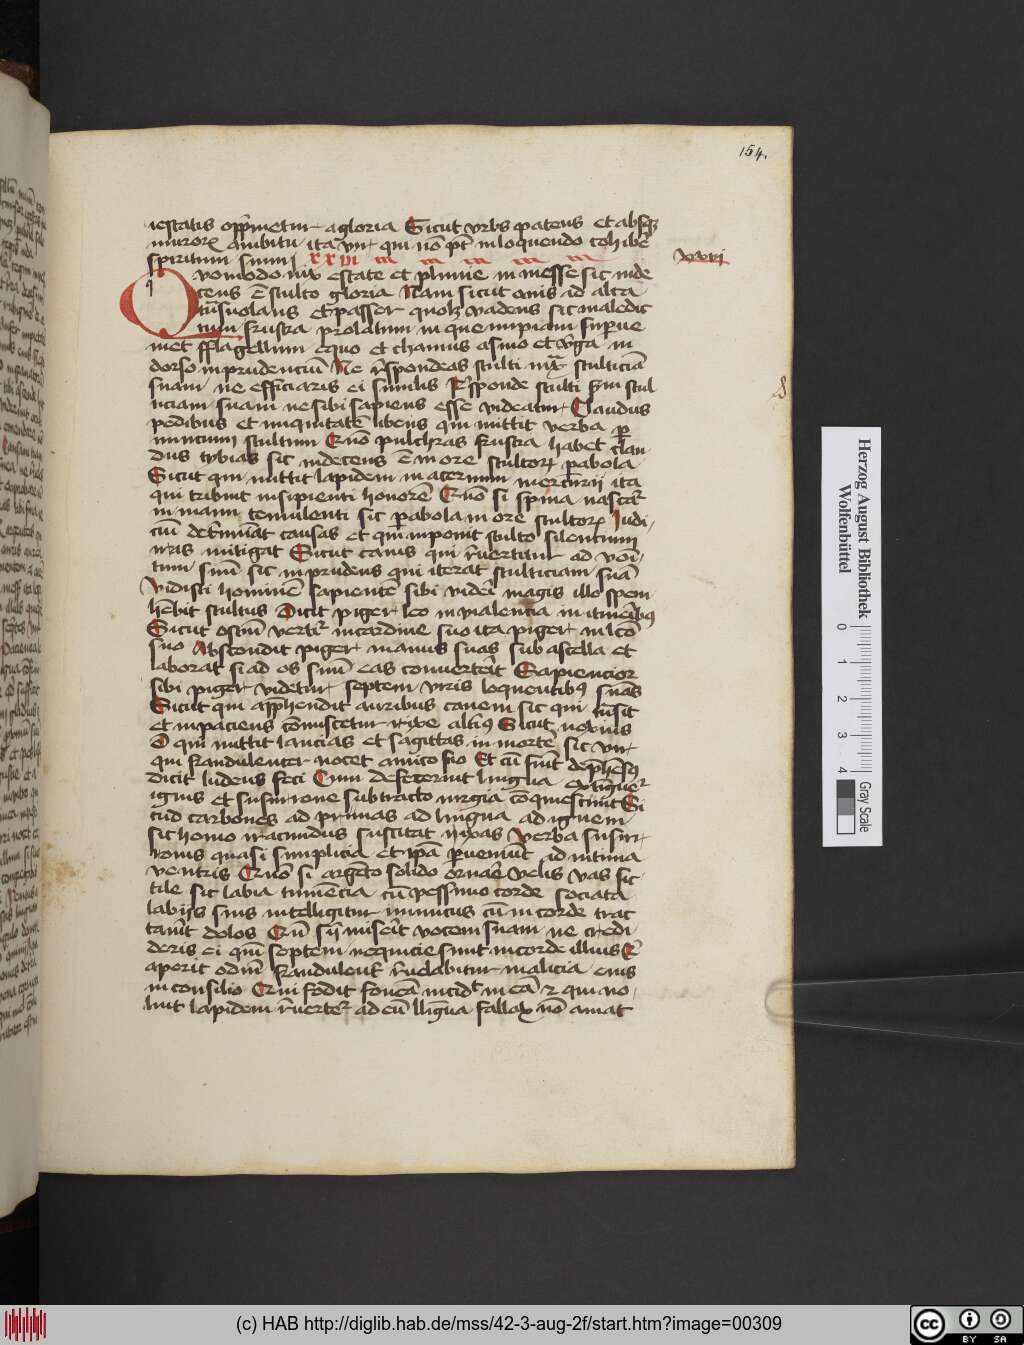 154.
iestatis opprimetur a gloria Sicut urbs patens et absq3
murorum ambitu ita vir qui no pt in loquendo cohibe
spiritum suum xxvi
xxvi
Quomodo nix estate et pluuie in messe sic inde
cens e stulto gloria Nam sicut auis ad alta
transuolans et passer quolz vadens sic maledic
tum frustra prolatum in quempiam superue
niet Flagellum equo et chamus asino et virga in
dorso inprudencium Ne respondeas stulti iuxta stulticia
suam ne efficiaris ei similis Responde stulti scdm stul
ticiam suam ne sibi sapiens esse videatur Claudus
pedibus et iniquitate bibens qui mittit verba per
nuncium stultum Quo pulchras frustra habet clau
dus tybias sic indecens e in ore stultorum parabola
Sicut qui mittit lapidem in aceruum mercurii ita
qui tribuit insipienti honore Quo si spina nascatur
in manu temulenti sic parabola in ore stultorum Judi
cium determinat causas et qui inponit stulto silencium
iras mitigat Sicut canis qui reuertitur ad vomi
tum suum sic inprudens qui iterat stulticiam sua
Vidisti homine sapiente sibi videri magis illo spem
hebit stultus Dicit piger leo in via leena in itineribus
Sicut ostium vertitur in cardine suo ita piger in lco
suo Abscondit piger manus suas sub ascella et
laborat si ad os suum eas conuerterit Sapiencior
sibi piger videtur septem viris loquentibus suas
Sicut qui apprehendit auribus canem sic qui transit
et inpaciens comiscetur rixe alterius Sicut noxius
e qui mittit lanceas et sagittas in morte sic vir
qui fraudulenter nocet amico suo Et cum fuerit deprehensus
dicit ludens feci Cum defecerint lingua extinguetur
ignis et susurrone subtracto iurgia coquiescunt Si
cud carbones ad prunas ad lingua ad ignem
sic homo iracundus suscitat rixas Verba susur
ronis quasi simplicia et ipa perueniunt ad intima
ventris Quo si argento solido ornare velis vas fic
tile sic labia tumencia cum pessimo corde sociata
labijs suis intelligitur inimicus cum in corde trac
tauerit dolos Qum sij miserit vocem suam ne credi
deris ei qum septem nequicie sunt in corde illius Q
aperit odium fraudulenter reuelabitur malicia eius
in consilio Qui fodit fouea incidet in ea et qui uo
luit lapidem reuertetur ad eum lingua fallax no amat
Herzog August Bibliothek
Wolfenbüttel
0 1 2 3 4
Gray Scale
(c) HAB http://diglib.hab.de/mss/42-3-aug-2f/start.htm?image=00309
cc BY SA